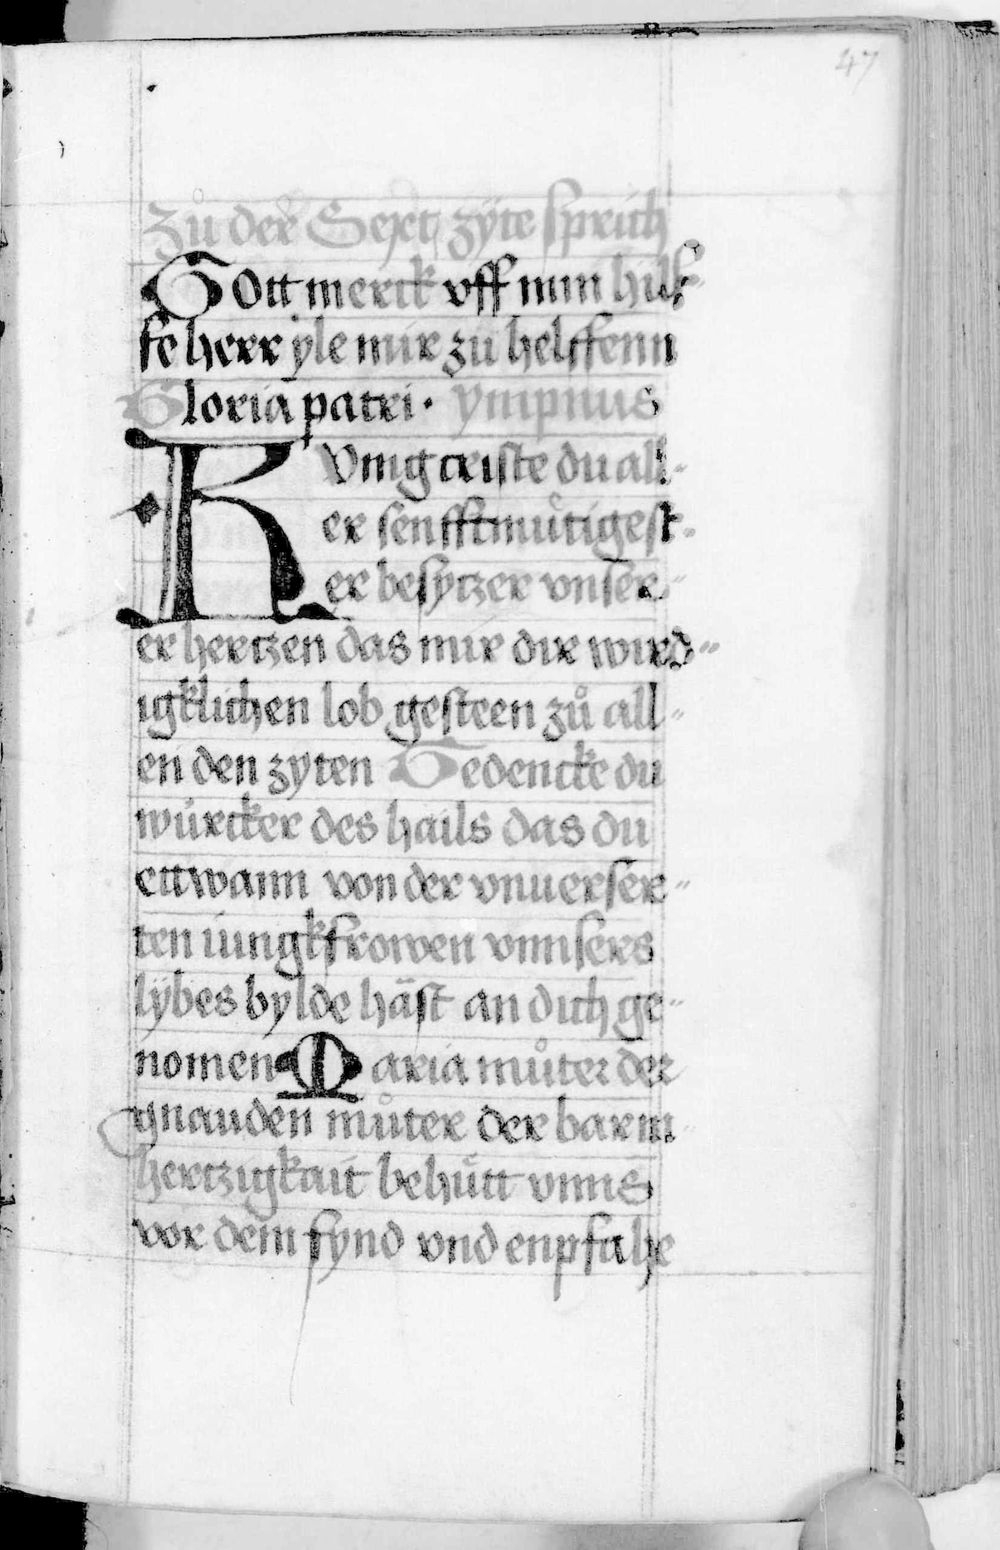 47
Zů der Sext zÿte sprich
Gott merck vff min hilf-
fe herr ÿle mir zů helffenn
Gloria patri · ympnus
Kvnig criste du all-
er senfftmůtigest-
er besytzer vnser-
er hertzen das mir dir wird-
igklichen lob gesteen zů all-
en den zyten Gedencke du
würcker des hails das du
ettwann von der vnuerser-
ten iungkfrowen vnnsers
lÿbes bylde häst an dich ge-
nomen Maria můter der
gnauden můter der barm-
hertzigkait behůtt vnns
vor dem fynd vnd enpfahe